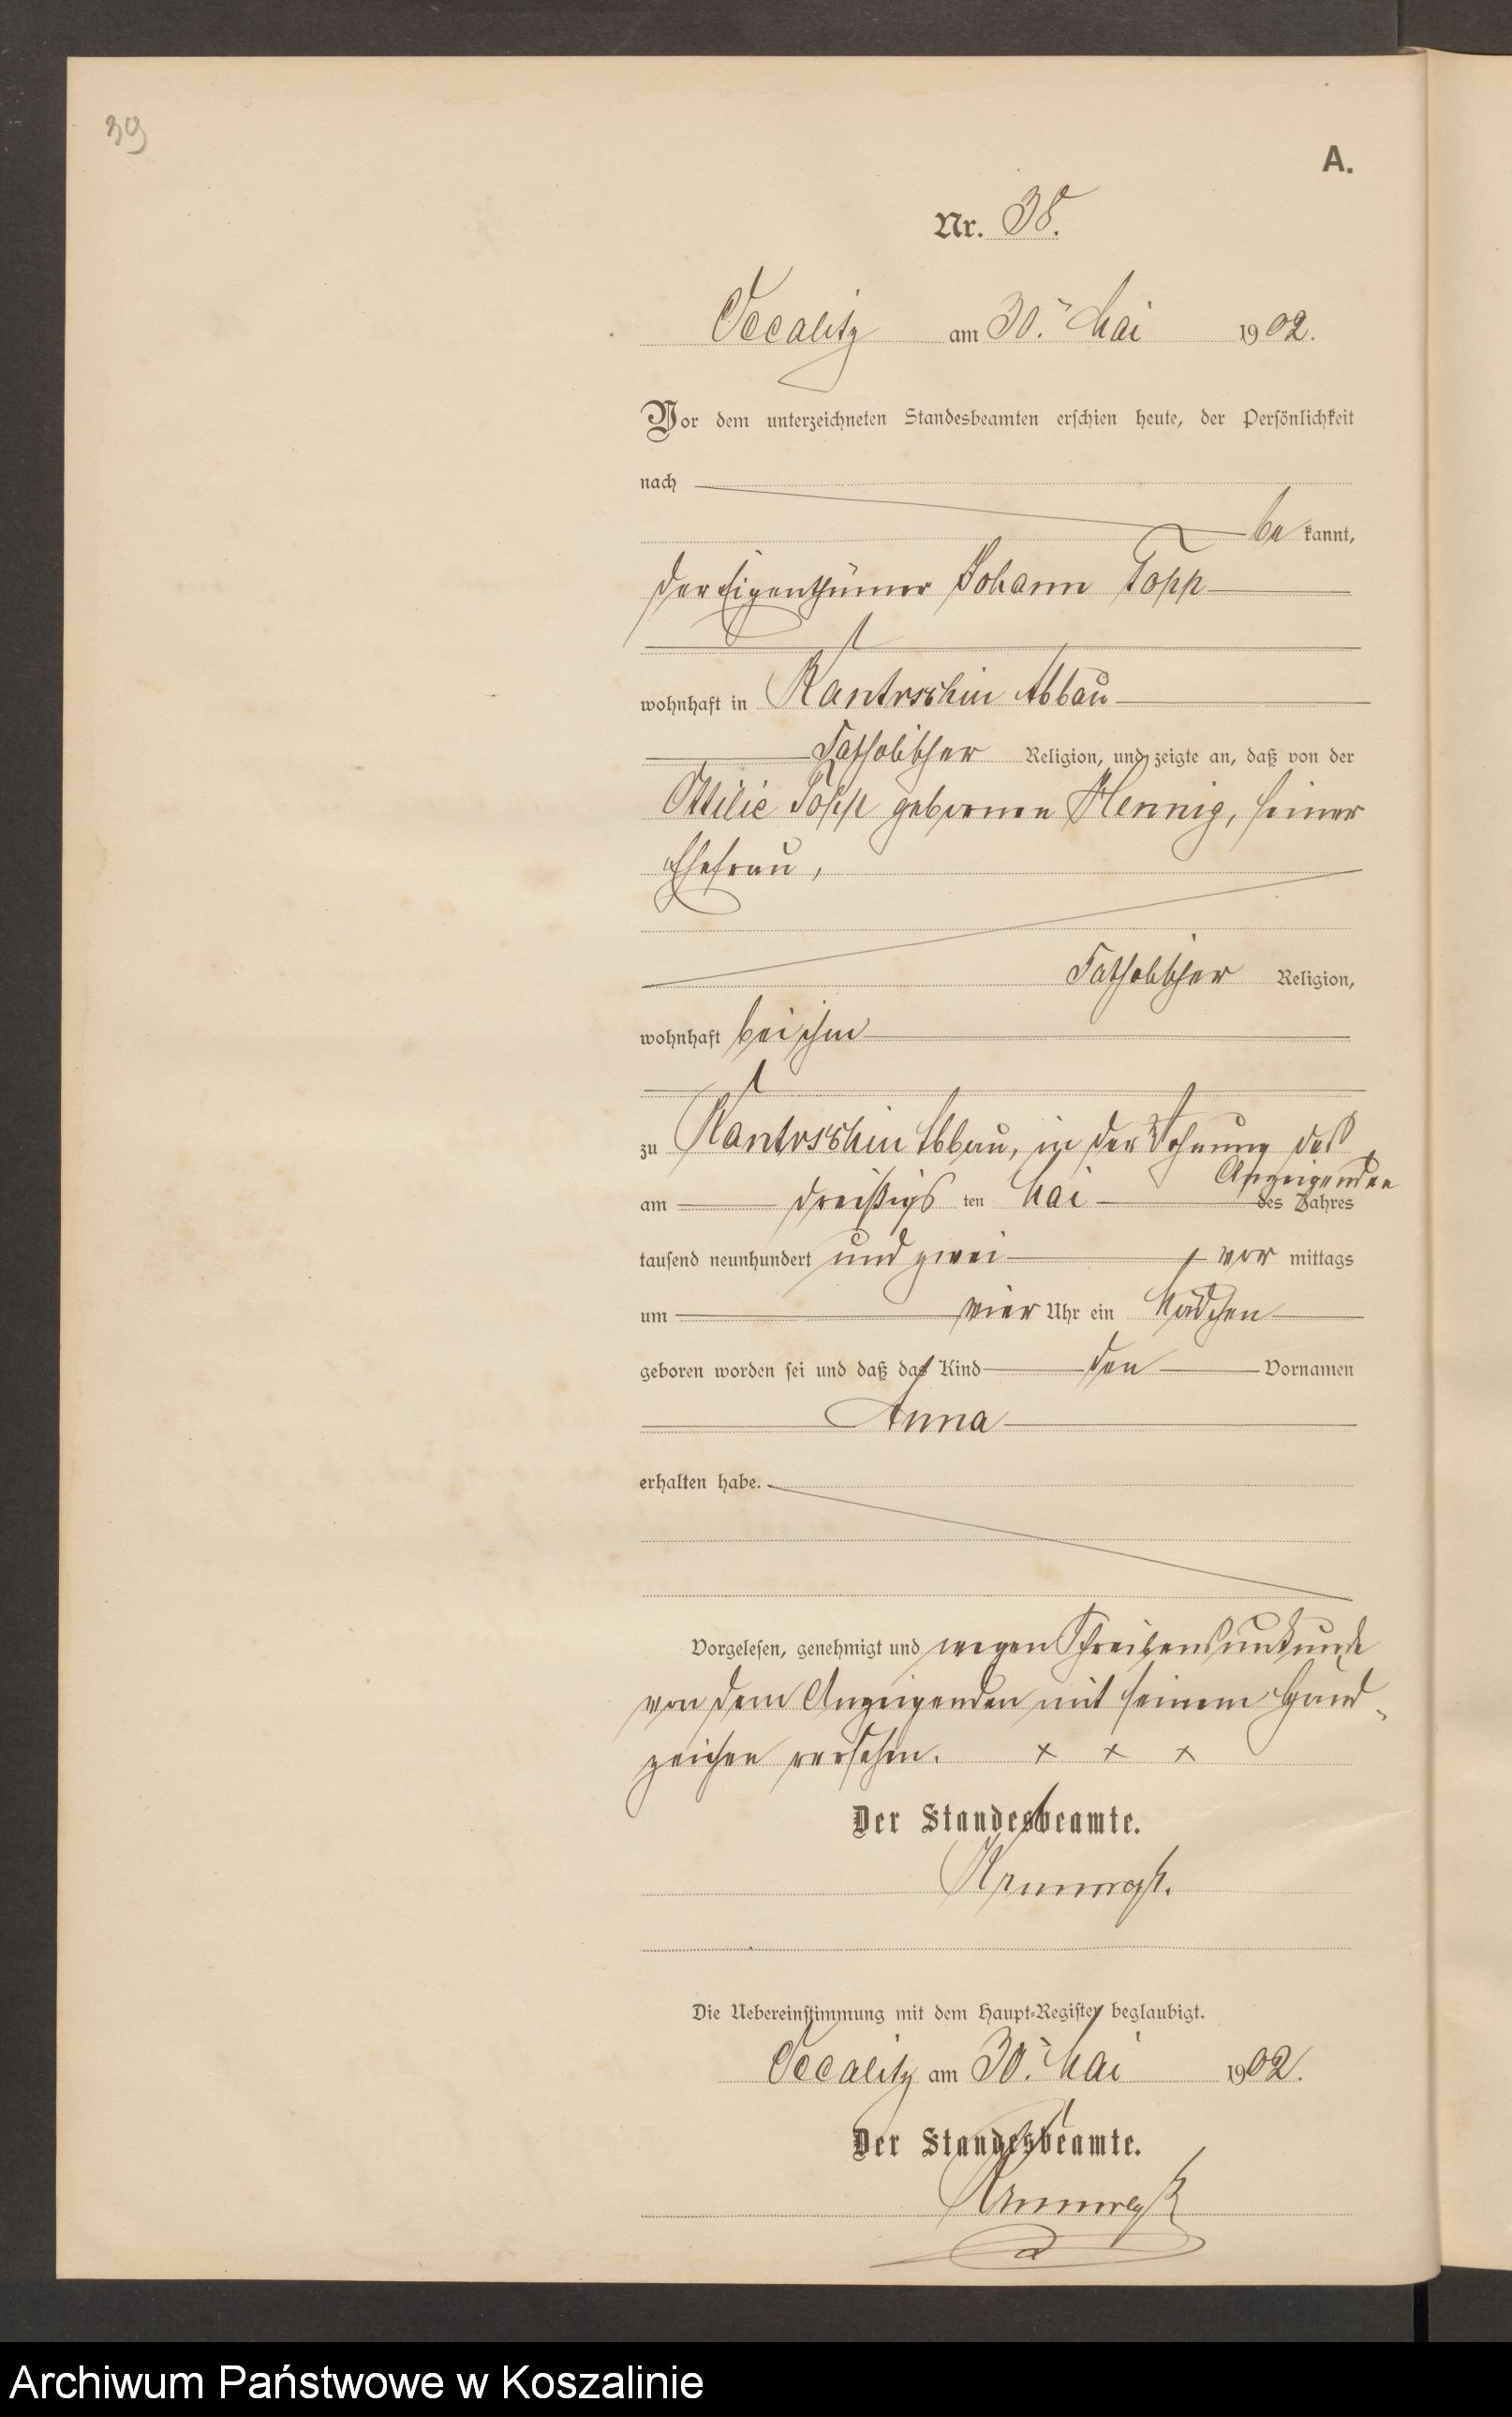 39
A.
Nr. 38.
Oecalitz am 30. Mai 1902.
Vor dem unterzeichneten Standesbeamten erschien heute, der Persönlichkeit
nach
be kannt,
der Eigenthümer Johann Topp
wohnhaft in Kantrschin Abbau
katholischer Religion, und zeigte an, daß von der
Ottilie Topp geborenen Hennig, seiner
Ehefrau,
katholischer Religion,
wohnhaft bei ihm
zu Kantrschin Abbau, in der Wohnung des
Anzeigenden
am dreißigs ten Mai des Jahres
tausend neunhundert und zwei vor mittags
um vier Uhr ein Mädchen
geboren worden sei und daß das Kind den Vornamen
Anna
erhalten habe.
Vorgelesen, genehmigt und wegen Schreibensunkunde
von dem Anzeigenden mit seinem Hand-
zeichen versehen. x x x
Der Standesbeamte.
Die Uebereinstimmung mit dem Haupt-Register beglaubigt.
Oecalitz am 30. Mai 1902.
Der Standesbeamte.
Archiwum Państwowe w Koszalinie